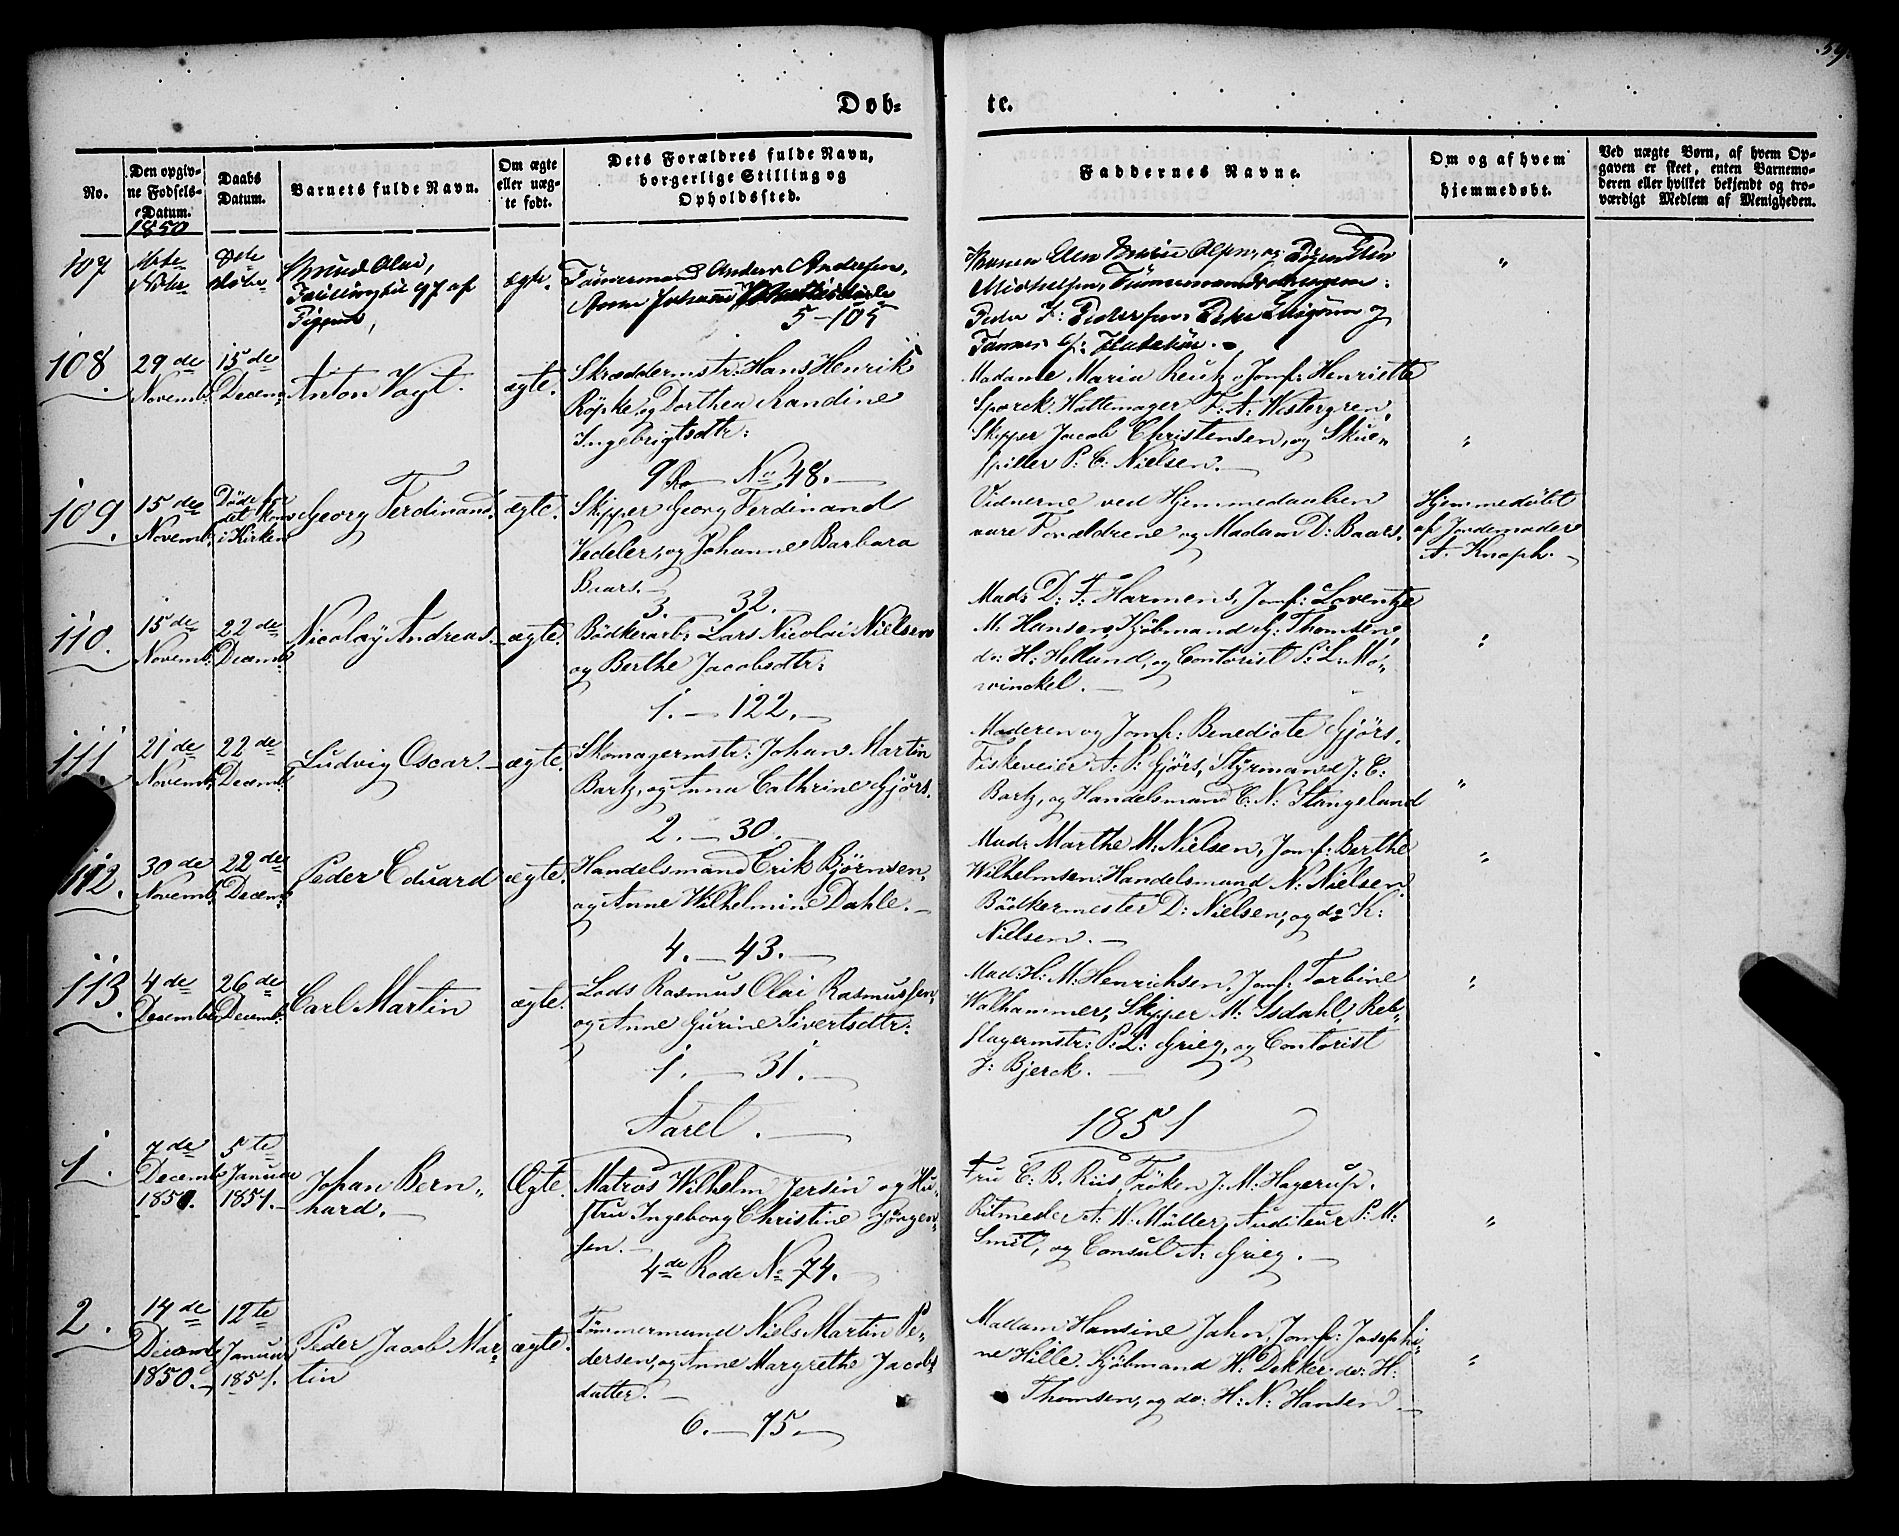 59.
Døb=
te.
No.
Den opgiv=
ne Fødsels=
Datum.
1850
Daabs
Datum.
Barnets fulde Navn.
Om ægte
eller uæg=
te født.
Dets Forældres fulde Navn,
borgerlige Stilling og
Opholdssted.
Faddernes Navne.
Om og af hvem
hjemmedøbt.
Ved uægte Børn, af hvem Op=
gaven er skeet, enten Barnemo=
deren eller hvilket bekjendt og tro=
værdigt Medlem af Menigheden.
107
Knud Olai,
Tvillingbr 97 af
ægte.
Tømmermand Anders Andersen,
Anne Johanne
5 – 105
Ellen Olsen, og
Michelsen, Tømmermand
Peder Pedersen, Peder og
"
108.
29de
Novemb:
15de
Decem:
Anton Vogt.
ægte.
Skræddermstr: Hans Henrik
Röpke, og Dorthea Randine
Ingebrigtsdtr:
9 Ro No 48.
Madame Maria Reutz, Jomf: Henriette
Spørck: Hattemager F: A: Westergren,
Skipper Jacob Christensen, og Skue„
spiller P: C: Nielsen.
"
109.
15de
Novemb:
Døde før
det kom
i Kirken
Georg Ferdinand.
ægte.
Skipper Georg Ferdinand
Vedeler, og Johanne Barbara
Baars.
3. – 32.
Vidnerne ved Hjemmedaaben
vare Forældrene og Madam D: Baars.
Hjemmedöbt
af Jordemoder
A. Knoph.
110.
15de
Novemb:
22de
Decemb:
Nicolay Andreas.
ægte.
Bödkerarb: Lars Nicolai Nielsen
og Berthe Jacobsdtr:
1. – 122.
Mad: D: F: Harmens, Jomf: Lorentze
M: Hansen, Kjöbmand G: Thomsen,
do: H: Helland, og Contorist P: L: Mo„
winckel.
"
111.
21de
Novemb:
22de
Decemb:
Ludvig Oscar.
ægte.
Skomagermstr: Johan Martin
Bartz, og Anna Cathrine Gjörs.
2. – 30.
Moderen og Jomf: Benedicte Gjörs.
Fiskeveier A: P: Gjörs, Styrmand J: C:
Bartz, og Handelsmand C: N: Stangeland
"
112.
30de
Novemb:
22de
Decem:
Peder Eduard
ægte.
Handelsmand Erik Björnsen,
og Anne Wilhelmine Dahle.
4. – 43.
Mad: Marthe M: Nielsen, Jomf: Berthe
Wilhelmsen. Handelsmand N: Nielsen,
Bödkermester D: Nielsen, og do K:
Nielsen.
"
113.
4de
Decemb:
26de
Decemb:
Carl Martin
ægte.
Lods Rasmus Olai Rasmussen,
og Anne Gurine Sivertsdtr:
1. – 31.
Mad: H: M: Henrichsen, Jomf: Torbine
Walhammer, Skipper M: Isdahl, Reb„
slagermstr: P: L: Grieg, og Contorist
J: Bjerck.
"
Aaret.
1851
1.
7de
Decemb
1850.
5te
Januar
1851.
Johan Bern„
hard.
Ægte.
Matros Wilhelm Jersin og Hu„
stru Ingeborg Christine Jörgen„
sen.
4de Rode No 74.
Fru C: B: Riis, Fröken J: M: Hagerup,
Ritmester A: W: Müller, Auditeur P: M:
Smit, og Consul A: Grieg.
"
2.
14de
Decemb
1850.
12te
Januar
1851.
Peder Jacob Mar„
tin
ægte.
Tömmermand Niels Martin Pe„
dersen, og Anne Margrethe Jacobs
datter.
6. – 75.
Madam Hansine Jahn, Jomf: Josephi„
ne Hille. Kjöbmand H: Dekker, do: H:
Thomsen, og do: H: N: Hansen
"